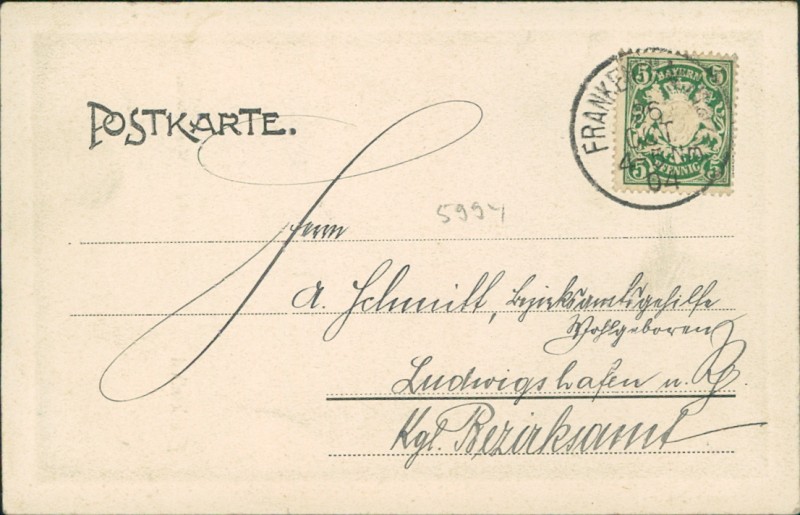 POSTKARTE.
5 5
BAYERN
PFENNIG
5 5
FRANKEN
26
OKT.
04
5994
Herrn
A. Schmitt, Bezirksamtsgehilfe
Wohlgeboren
Ludwigshafen a. Rh.
Kgl. Bezirksamt